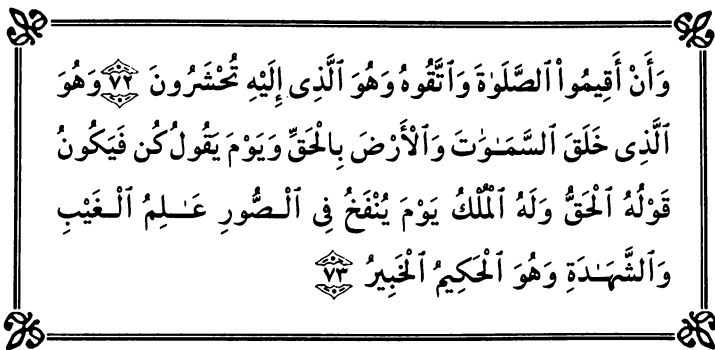 وَأَنْ أَقِيمُواْ ٱلصَّلَوٰةَ وَٱتَّقُوهُ وَهُوَ ٱلَّذِى إِلَيْهِ تُحْشَرُونَ ٧٢ وَهُوَ
ٱلَّذِى خَلَقَ ٱلسَّمَـٰوَٰتِ وَٱلْأَرْضَ بِالْحَقِّ وَيَوْمَ يَقُولُ كُن فَيَكُونُ
قَوْلُهُ ٱلْحَقُّ وَلَهُ ٱلْمُلْكُ يَوْمَ يُنْفَخُ فِى ٱلـصُّورِ عَـٰـلِمُ ٱلْـغَيْبِ
وَٱلشَّهَـٰدَةِ وَهُوَ ٱلْحَكِيمُ ٱلْخَبِيرُ ٧٣